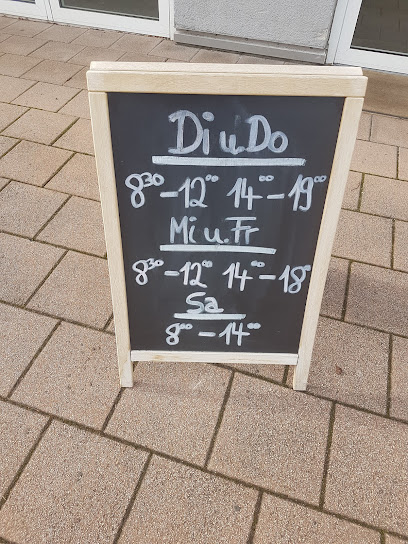 Di u Do
8³⁰-12⁰⁰ 14⁰⁰-19⁰⁰
Mi u. Fr
8³⁰-12⁰⁰ 14⁰⁰-18⁰⁰
Sa
8⁰⁰-14⁰⁰